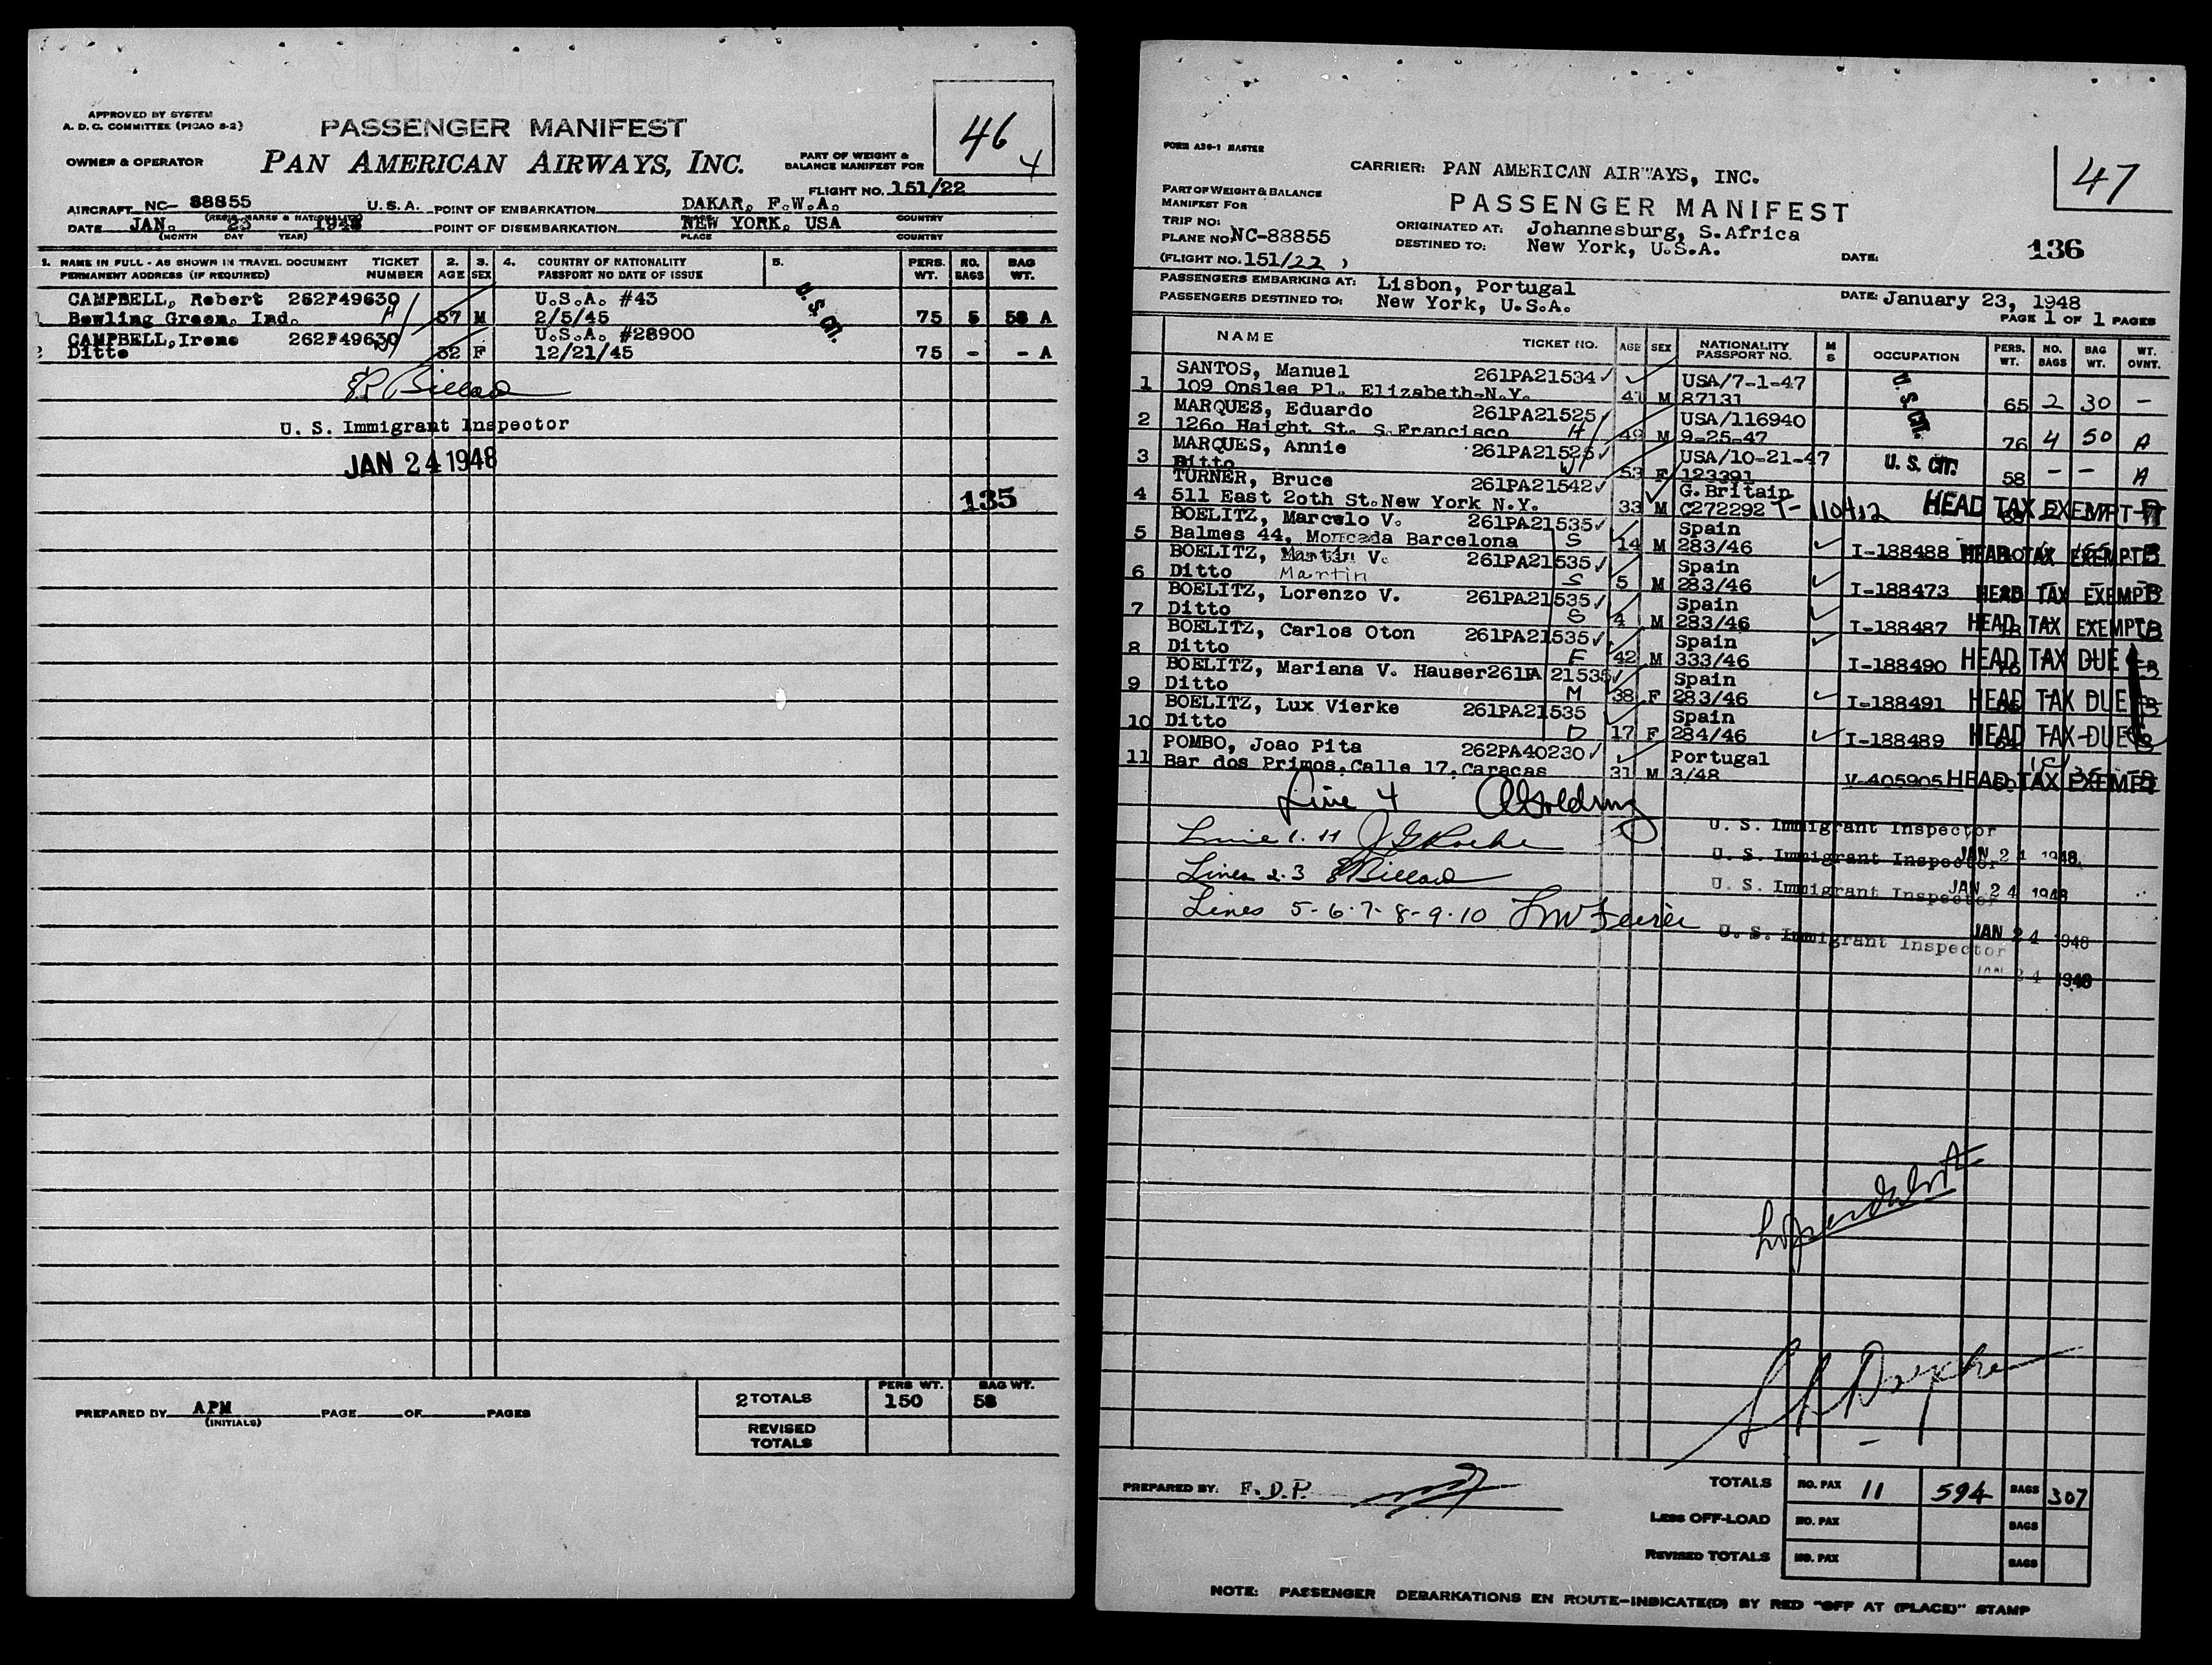 APPROVED BY SYSTEM
A. D. C. COMMITTEE (PICAO S-2)
PASSENGER MANIFEST
46
4
OWNER & OPERATOR
PAN AMERICAN AIRWAYS, INC.
PART OF WEIGHT &
BALANCE MANIFEST FOR
FLIGHT NO. 151/22
AIRCRAFT NC- 88855 U.S.A. POINT OF EMBARKATION DAKAR, F.W.A.
(REGIS. MARKS & NATIONALITY) COUNTRY
DATE JAN. 23 1948 POINT OF DISEMBARKATION NEW YORK, USA
(MONTH DAY YEAR) PLACE COUNTRY
1. NAME IN FULL - AS SHOWN IN TRAVEL DOCUMENT TICKET 2. 3. 4. COUNTRY OF NATIONALITY 5. PERS. NO. BAG
PERMANENT ADDRESS (IF REQUIRED) NUMBER AGE SEX PASSPORT NO DATE OF ISSUE WT. BAGS WT.
CAMPBELL, Robert 262P49630 U.S.A. #43
1 Bowling Green, Ind. H 57 M 2/5/45 U.S. CIT. 75 5 58 A
CAMPBELL, Irene 262P49630 U.S.A. #28900
2 Ditto W 52 F 12/21/45 75 - - A
E.P. Billard
U. S. Immigrant Inspector
JAN 24 1948
135
PREPARED BY APM PAGE OF PAGES
(INITIALS)
PERS WT. BAG WT.
2 TOTALS 150 58
REVISED
TOTALS
FORM A36-1 MASTER
CARRIER: PAN AMERICAN AIRWAYS, INC.
47
PART OF WEIGHT & BALANCE
MANIFEST FOR
PASSENGER MANIFEST
TRIP NO:
ORIGINATED AT: Johannesburg, S.Africa
PLANE NO: NC-88855
DESTINED TO: New York, U.S.A.
DATE:
136
(FLIGHT NO. 151/22 )
PASSENGERS EMBARKING AT: Lisbon, Portugal
DATE: January 23, 1948
PASSENGERS DESTINED TO: New York, U.S.A.
PAGE 1 OF 1 PAGES
NAME TICKET NO. AGE SEX NATIONALITY PASSPORT NO. M S OCCUPATION PERS. WT. NO. BAGS BAG WT. WT. OVNT.
SANTOS, Manuel 261PA21534 USA/7-1-47
1 109 Onslea Pl. Elizabeth-N.Y. 41 M 87131 U.S. CIT. 65 2 30 -
MARQUES, Eduardo 261PA21525 USA/116940
2 1260 Haight St. S.Francisco H 49 M 9-25-47 76 4 50 A
MARQUES, Annie 261PA21525 USA/10-21-47
3 Ditto W 53 F 123391 U.S. CIT. 58 - - A
TURNER, Bruce 261PA21542 G.Britain
4 511 East 20th St.New York N.Y. 33 M C272292 T-110412 HEAD TAX EXEMPT
BOELITZ, Marcelo V. 261PA21535 Spain
5 Balmes 44, Moncada Barcelona S 14 M 283/46 I-188488 HEAD TAX EXEMPT B
BOELITZ, Martin V. 261PA21535 Spain
6 Ditto Martin S 5 M 283/46 I-188473 HEAD TAX EXEMPT B
BOELITZ, Lorenzo V. 261PA21535 Spain
7 Ditto S 4 M 283/46 I-188487 HEAD TAX EXEMPT B
BOELITZ, Carlos Oton 261PA21535 Spain
8 Ditto F 42 M 333/46 I-188490 HEAD TAX DUE B
BOELITZ, Mariana V. Hauser 261PA 21535 Spain
9 Ditto M 38 F 283/46 I-188491 HEAD TAX DUE B
BOELITZ, Lux Vierke 261PA21535 Spain
10 Ditto D 17 F 284/46 I-188489 HEAD TAX DUE B
POMBO, Joao Pita 262PA40230 Portugal
11 Bar dos Primos,Calle 17,Caracas 31 M 3/48 V-405905 HEAD TAX EXEMPT
Line 4 A Golding
U. S. Immigrant Inspector
Line 1. 11 J G Roche
U. S. Immigrant Inspector JAN 24 1948
Lines 2.3 E P Billard
U. S. Immigrant Inspector JAN 24 1948
Lines 5-6-7-8-9-10
U. S. Immigrant Inspector JAN 24 1948
JAN 24 1948
PREPARED BY: F.D.P.
TOTALS NO. PAX 11 594 BAGS 307
LESS OFF-LOAD NO. PAX BAGS
REVISED TOTALS NO. PAX BAGS
NOTE: PASSENGER DEBARKATIONS EN ROUTE-INDICATE(D) BY RED "OFF AT (PLACE)" STAMP